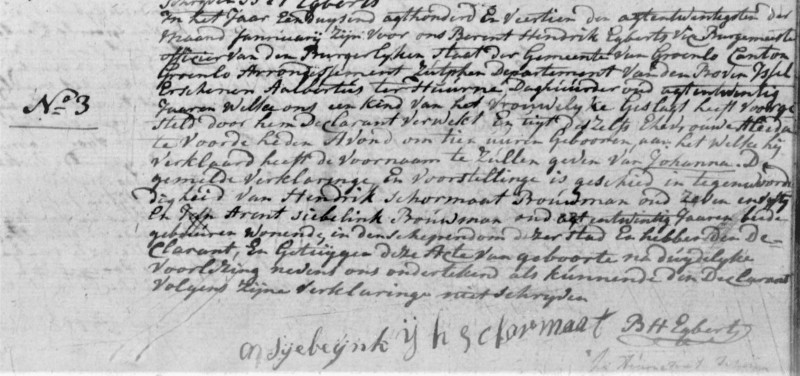 Schryven B H Egberts
In het Jaar Een Duysend agthonderd En Veertien den agtentwintigsten der
Maand Januuarij Zijn Voor ons Berent Hendrik Egberts Vice Burgemeister
officier van den Burgerlyken Staat der Gemeente van Groenlo Canton
Groenlo Arrondissement Zutphen Departement Van den Boven Yssel
Erschenen Aalbertus ter Huurne Daghuurder oud agtentwintig
Jaaren Welke ons een kind van het Vrouwelyke Geslagt heeft Voorge
N.o 3
Steld door hem Declarant Verwekt En uyt deszelfs Ehevrouwe Aleida
te Voorde heden Avond om tien uuren Gebooren, aan het welke hij
Verklaard heeft de Voornaam te Zullen geven Van Johanna. De
gemelde Verklaringe En Voorstellinge is geschied in tegenwoor
digheid van Hendrik Schormaat Bouwman oud Zeven en
En Jan Arent Siebelink Bouwman oud agtentwintig Jaaren beide
gebuuren wonende in den schependom dezer Stad En hebben den De-
Clarant, En Getuygen deze Acte van geboorte na duydelyke
Voorlezing nevens ons ondertekend als kunnende den Declarant
Volgens Zijne Verklaringe niet Schryven
h schormaat B H Egberts